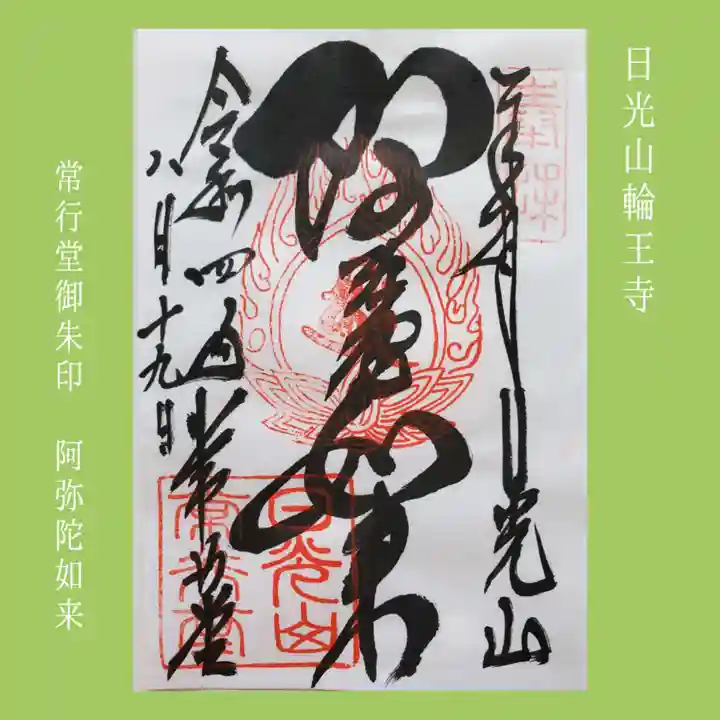 日光山輪王寺
常行堂御朱印　阿弥陀如来
奉拝
日光山
阿弥陀如来
令和四年
八月十九日
常行堂
日光山
常行堂